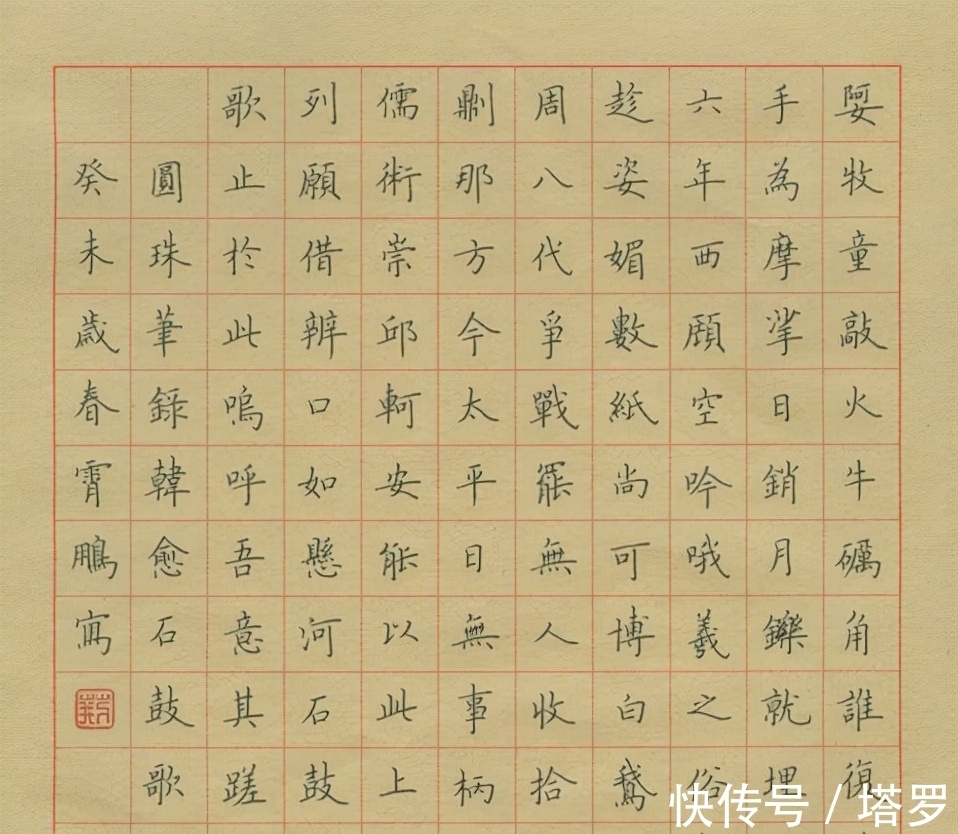 娿牧童敲火牛礪角誰復
手為摩挲日銷月鑠就埋
六年西顧空吟哦羲之俗
趁姿媚數紙尚可博白鵞
周八代爭戰罷無人收拾
則那方今太平日無事柄
儒術崇邱軻安能以此上
列願借辨口如懸河石鼓
歌止於此嗚呼吾意其蹉
圓珠筆錄韓愈石鼓歌
癸未歲春霄鵬寫
快传号 / 塔罗